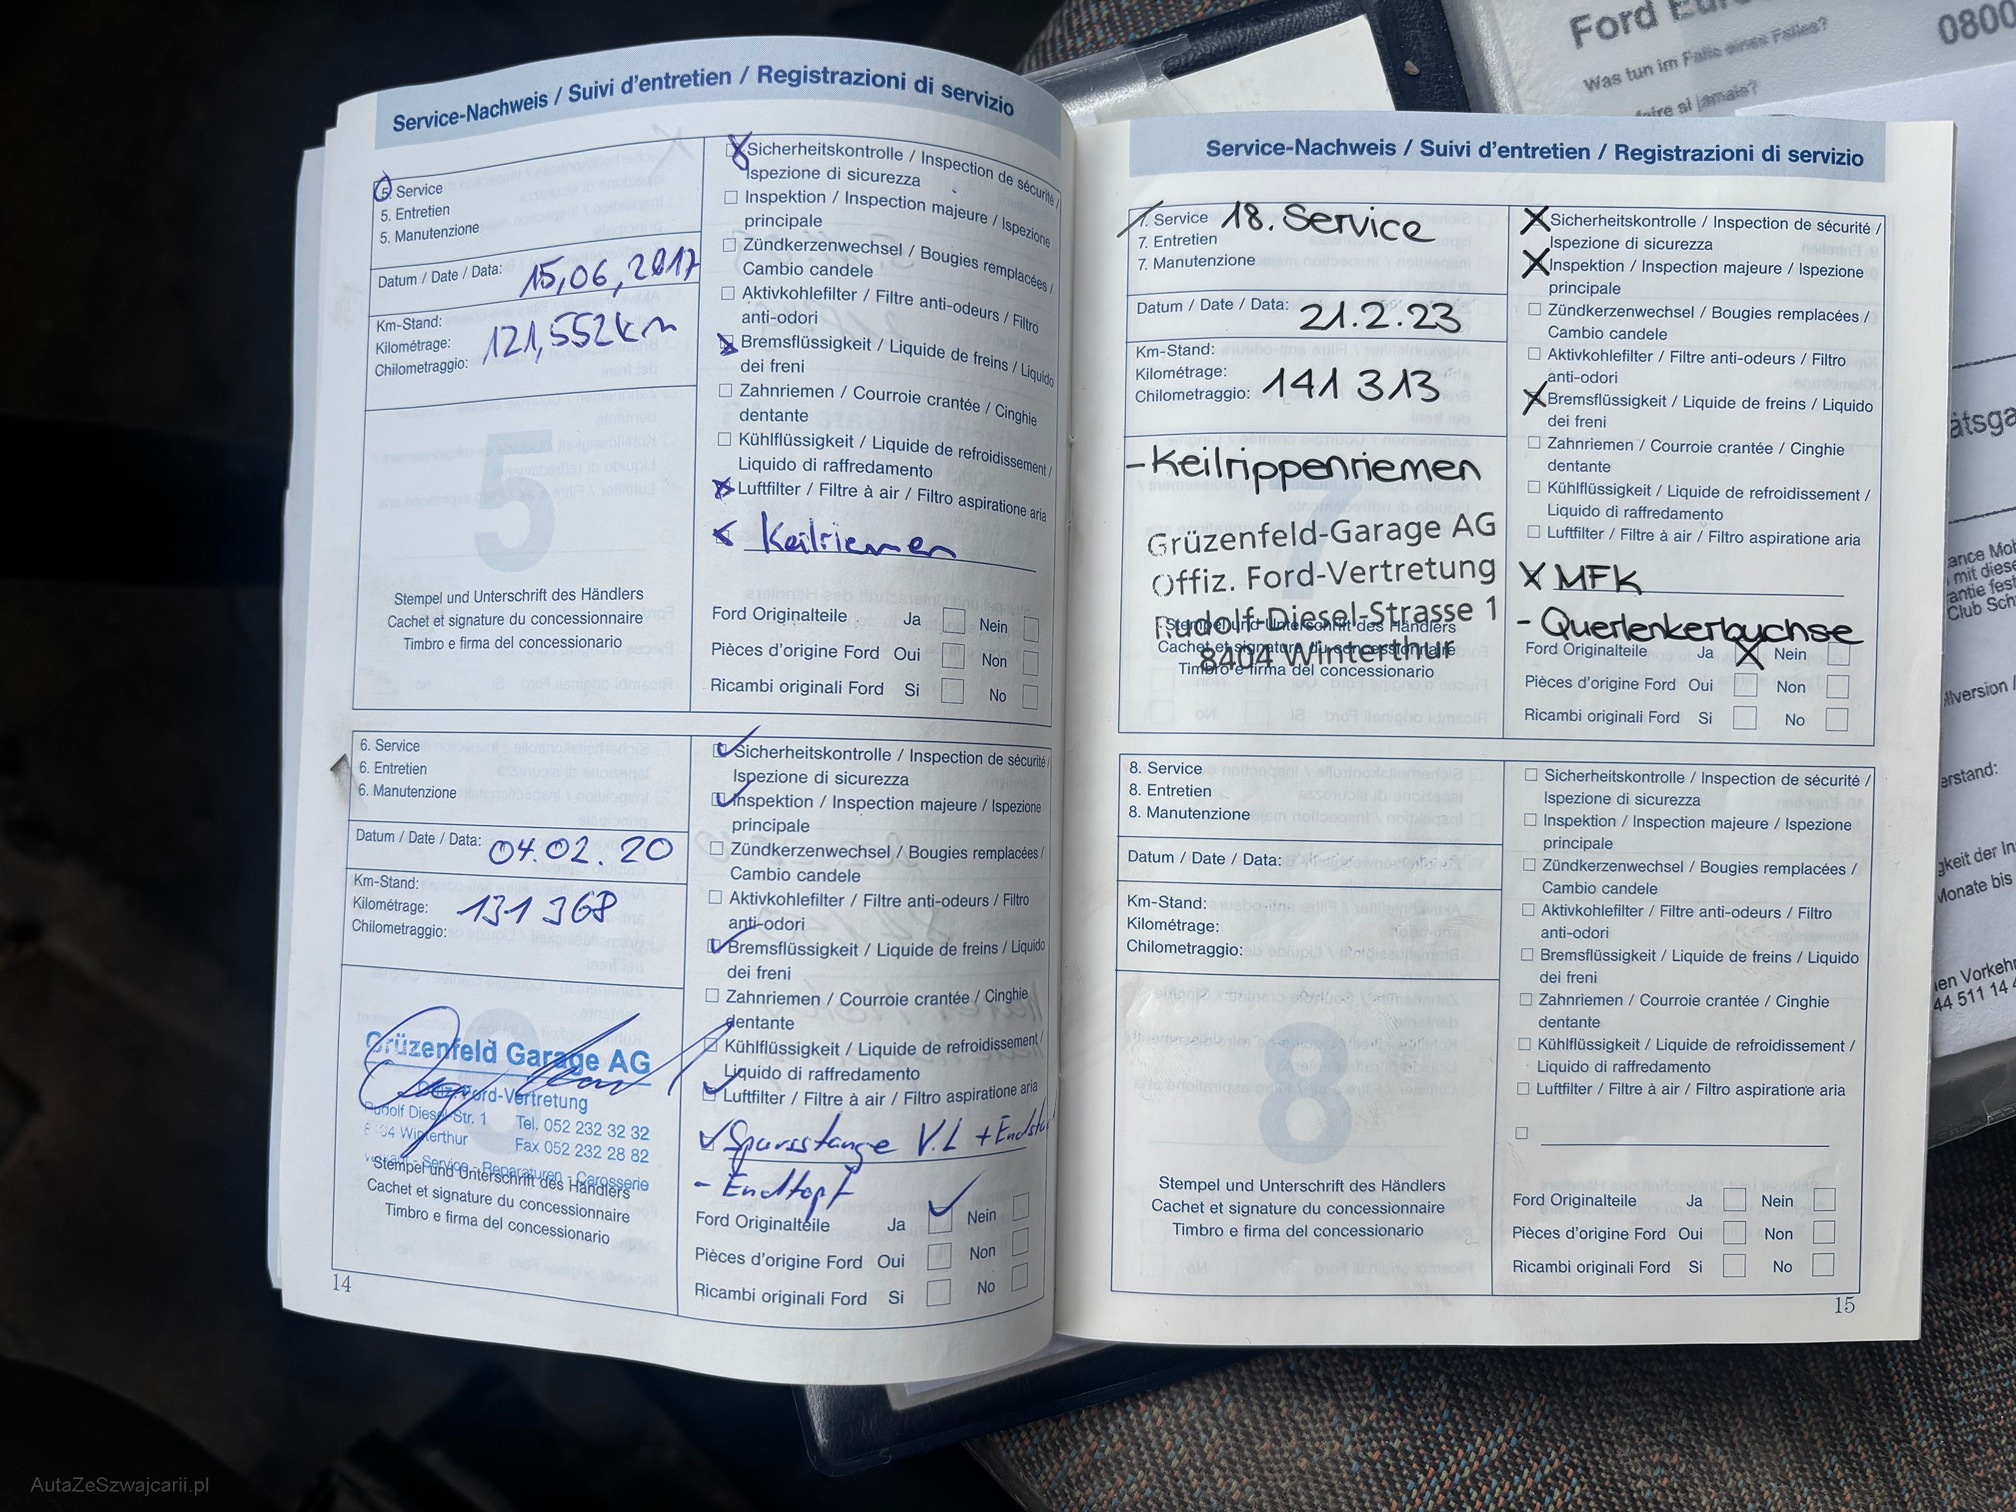 Service-Nachweis / Suivi d'entretien / Registrazioni di servizio
5. Service
5. Entretien
5. Manutenzione
Datum / Date / Data: 15,06,2017
Km-Stand:
Kilométrage: 121,552km
Chilometraggio:
5
Stempel und Unterschrift des Händlers
Cachet et signature du concessionnaire
Timbro e firma del concessionario
Sicherheitskontrolle / Inspection de sécurité /
Ispezione di sicurezza
Inspektion / Inspection majeure / Ispezione
principale
Zündkerzenwechsel / Bougies remplacées /
Cambio candele
Aktivkohlefilter / Filtre anti-odeurs / Filtro
anti-odori
Bremsflüssigkeit / Liquide de freins / Liquido
dei freni
Zahnriemen / Courroie crantée / Cinghie
dentante
Kühlflüssigkeit / Liquide de refroidissement /
Liquido di raffredamento
Luftfilter / Filtre à air / Filtro aspiratione aria
Keilriemen
Ford Originalteile Ja Nein
Pièces d'origine Ford Oui Non
Ricambi originali Ford Si No
6. Service
6. Entretien
6. Manutenzione
Datum / Date / Data: 04.02.20
Km-Stand:
Kilométrage: 131 368
Chilometraggio:
Grüzenfeld Garage AG
Offiz. Ford-Vertretung
Rudolf Diesel-Str. 1 Tel. 052 232 32 32
8404 Winterthur Fax 052 232 28 82
Service - Reparaturen - Carosserie
Stempel und Unterschrift des Händlers
Cachet et signature du concessionnaire
Timbro e firma del concessionario
Sicherheitskontrolle / Inspection de sécurité /
Ispezione di sicurezza
Inspektion / Inspection majeure / Ispezione
principale
Zündkerzenwechsel / Bougies remplacées /
Cambio candele
Aktivkohlefilter / Filtre anti-odeurs / Filtro
anti-odori
Bremsflüssigkeit / Liquide de freins / Liquido
dei freni
Zahnriemen / Courroie crantée / Cinghie
dentante
Kühlflüssigkeit / Liquide de refroidissement /
Liquido di raffredamento
Luftfilter / Filtre à air / Filtro aspiratione aria
Spurstange V.L +
- Endtopf
Ford Originalteile Ja Nein
Pièces d'origine Ford Oui Non
Ricambi originali Ford Si No
14
Service-Nachweis / Suivi d'entretien / Registrazioni di servizio
7. Service 18. Service
7. Entretien
7. Manutenzione
Datum / Date / Data: 21.2.23
Km-Stand:
Kilométrage:
Chilometraggio: 141 313
- Keilrippenriemen
7
Grüzenfeld-Garage AG
Offiz. Ford-Vertretung
Rudolf-Diesel-Strasse 1
8404 Winterthur
Stempel und Unterschrift des Händlers
Cachet et signature du concessionnaire
Timbro e firma del concessionario
Sicherheitskontrolle / Inspection de sécurité /
Ispezione di sicurezza
Inspektion / Inspection majeure / Ispezione
principale
Zündkerzenwechsel / Bougies remplacées /
Cambio candele
Aktivkohlefilter / Filtre anti-odeurs / Filtro
anti-odori
Bremsflüssigkeit / Liquide de freins / Liquido
dei freni
Zahnriemen / Courroie crantée / Cinghie
dentante
Kühlflüssigkeit / Liquide de refroidissement /
Liquido di raffredamento
Luftfilter / Filtre à air / Filtro aspiratione aria
MFK
- Querlenkerbuchse
Ford Originalteile Ja Nein
Pièces d'origine Ford Oui Non
Ricambi originali Ford Si No
8. Service
8. Entretien
8. Manutenzione
Datum / Date / Data:
Km-Stand:
Kilométrage:
Chilometraggio:
8
Stempel und Unterschrift des Händlers
Cachet et signature du concessionnaire
Timbro e firma del concessionario
Sicherheitskontrolle / Inspection de sécurité /
Ispezione di sicurezza
Inspektion / Inspection majeure / Ispezione
principale
Zündkerzenwechsel / Bougies remplacées /
Cambio candele
Aktivkohlefilter / Filtre anti-odeurs / Filtro
anti-odori
Bremsflüssigkeit / Liquide de freins / Liquido
dei freni
Zahnriemen / Courroie crantée / Cinghie
dentante
Kühlflüssigkeit / Liquide de refroidissement /
Liquido di raffredamento
Luftfilter / Filtre à air / Filtro aspiratione aria
Ford Originalteile Ja Nein
Pièces d'origine Ford Oui Non
Ricambi originali Ford Si No
15
Ford
0800
Was tun im Falle eines Falles?
si jamais?
mit diese
Club
Monate bis
44 511 14
AutaZeSzwajcarii.pl